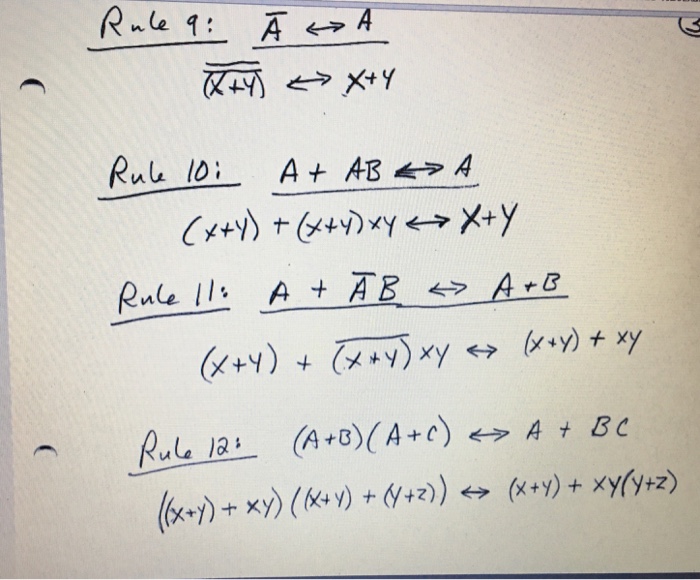 Rule 9: A̅ ↔ A
(X+Y)̿ ↔ X+Y
Rule 10: A + AB ↔ A
(X+Y) + (X+Y)XY ↔ X+Y
Rule 11: A + A̅B ↔ A+B
(X+Y) + (X̅+̅Y̅)XY ↔ (X+Y) + XY
Rule 12: (A+B)(A+C) ↔ A + BC
((X+Y) + XY)((X+Y) + (Y+Z)) ↔ (X+Y) + XY(Y+Z)